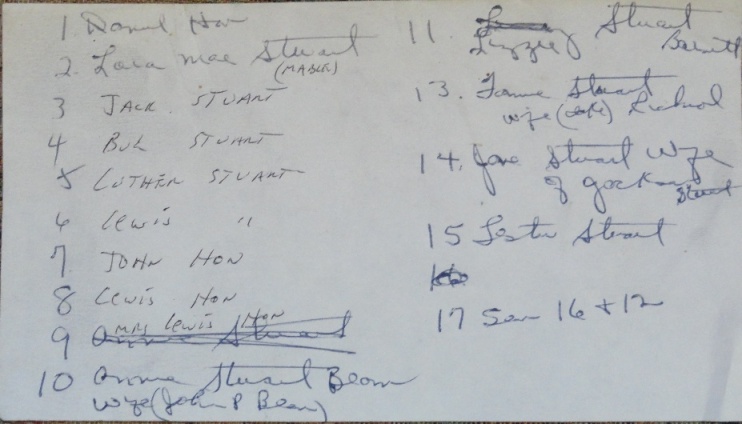 1. Daniel Hon
2. Lora Mae Stuart
(MABLE)
3 JACK. STUART
4 BUL STUART
5 LUTHER STUART
6 Lewis "
7 JOHN HON
8 Lewis HON
9 MRS Lewis HON
10 Annie Stuart Bean
wife (John P Bean)
11. Lizzie Stuart
Barnett
13. Fannie Stuart
wife (of)
14. Jane Stuart Wife
of Jackson
Stuart
15 Lester Stuart
16
17 See 16 + 12